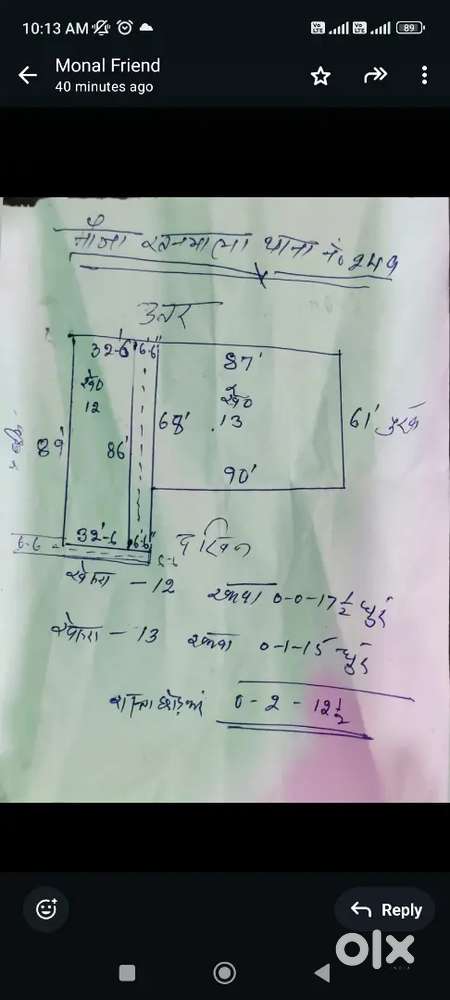 10:13 AM
89
Monal Friend
40 minutes ago
मौजा थाना नं० 249
उत्तर
32-6 6-6" 87'
खे०
12
खे०
13
89' 86' 68' 61'
90'
32'-6 6'6"
6-6
दक्षिण
6-6
खेसरा - 12 रकबा 0-0-17 1/2 धुर
खेसरा - 13 रकबा 0-1-15 धुर
रास्ता छोड़कर 0-2-12 1/2
Reply
olx